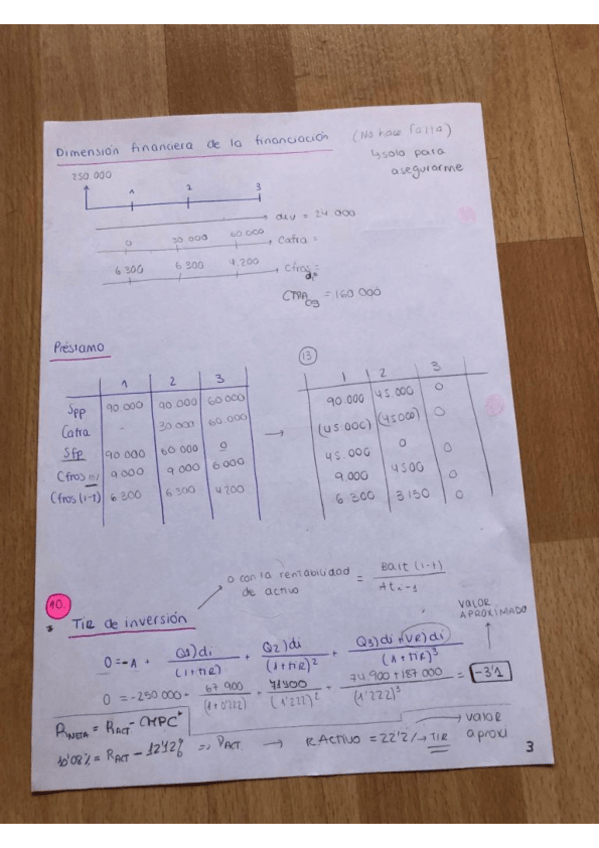 Dimensión financiera de la financiación (No hace falta)
↳ solo para
asegurarme
250.000
1 2 3
div = 24.000
0 30.000 60.000 Catra =
6 300 6 300 4.200 Cfros =
di
CTPA = 160 000
Préstamo
1 2 3
Spp 90 000 90 000 60 000
Catra - 30 000 60 000
Sfp 90 000 60 000 0
Cfros 9 000 9 000 6 000
Cfros (1-t) 6 300 6 300 4 200
→
13
1 2 3
90.000 45.000 0
(45 000) (45000) 0
45.000 0 0
9.000 4500 0
6 300 3 150 0
10.
TIR de inversión
o con la rentabilidad
de activo = Bait (1-t) / At i-1
VALOR
APROXIMADO
0 = -A + Q1)di / (1+TIR) + Q2)di / (1+TIR)² + Q3)di + VR)di / (1+TIR)³
0 = -250.000 + 67 900 / (1+0'222) + 71900 / (1'222)² + 74 900 + 187 000 / (1'222)³ = -3'1
R NETA = R ACT - CMPC
10'08% = R ACT - 12'12% => R ACT. → R ACTIVO = 22'2% → TIR
→ valor
aproxi
3